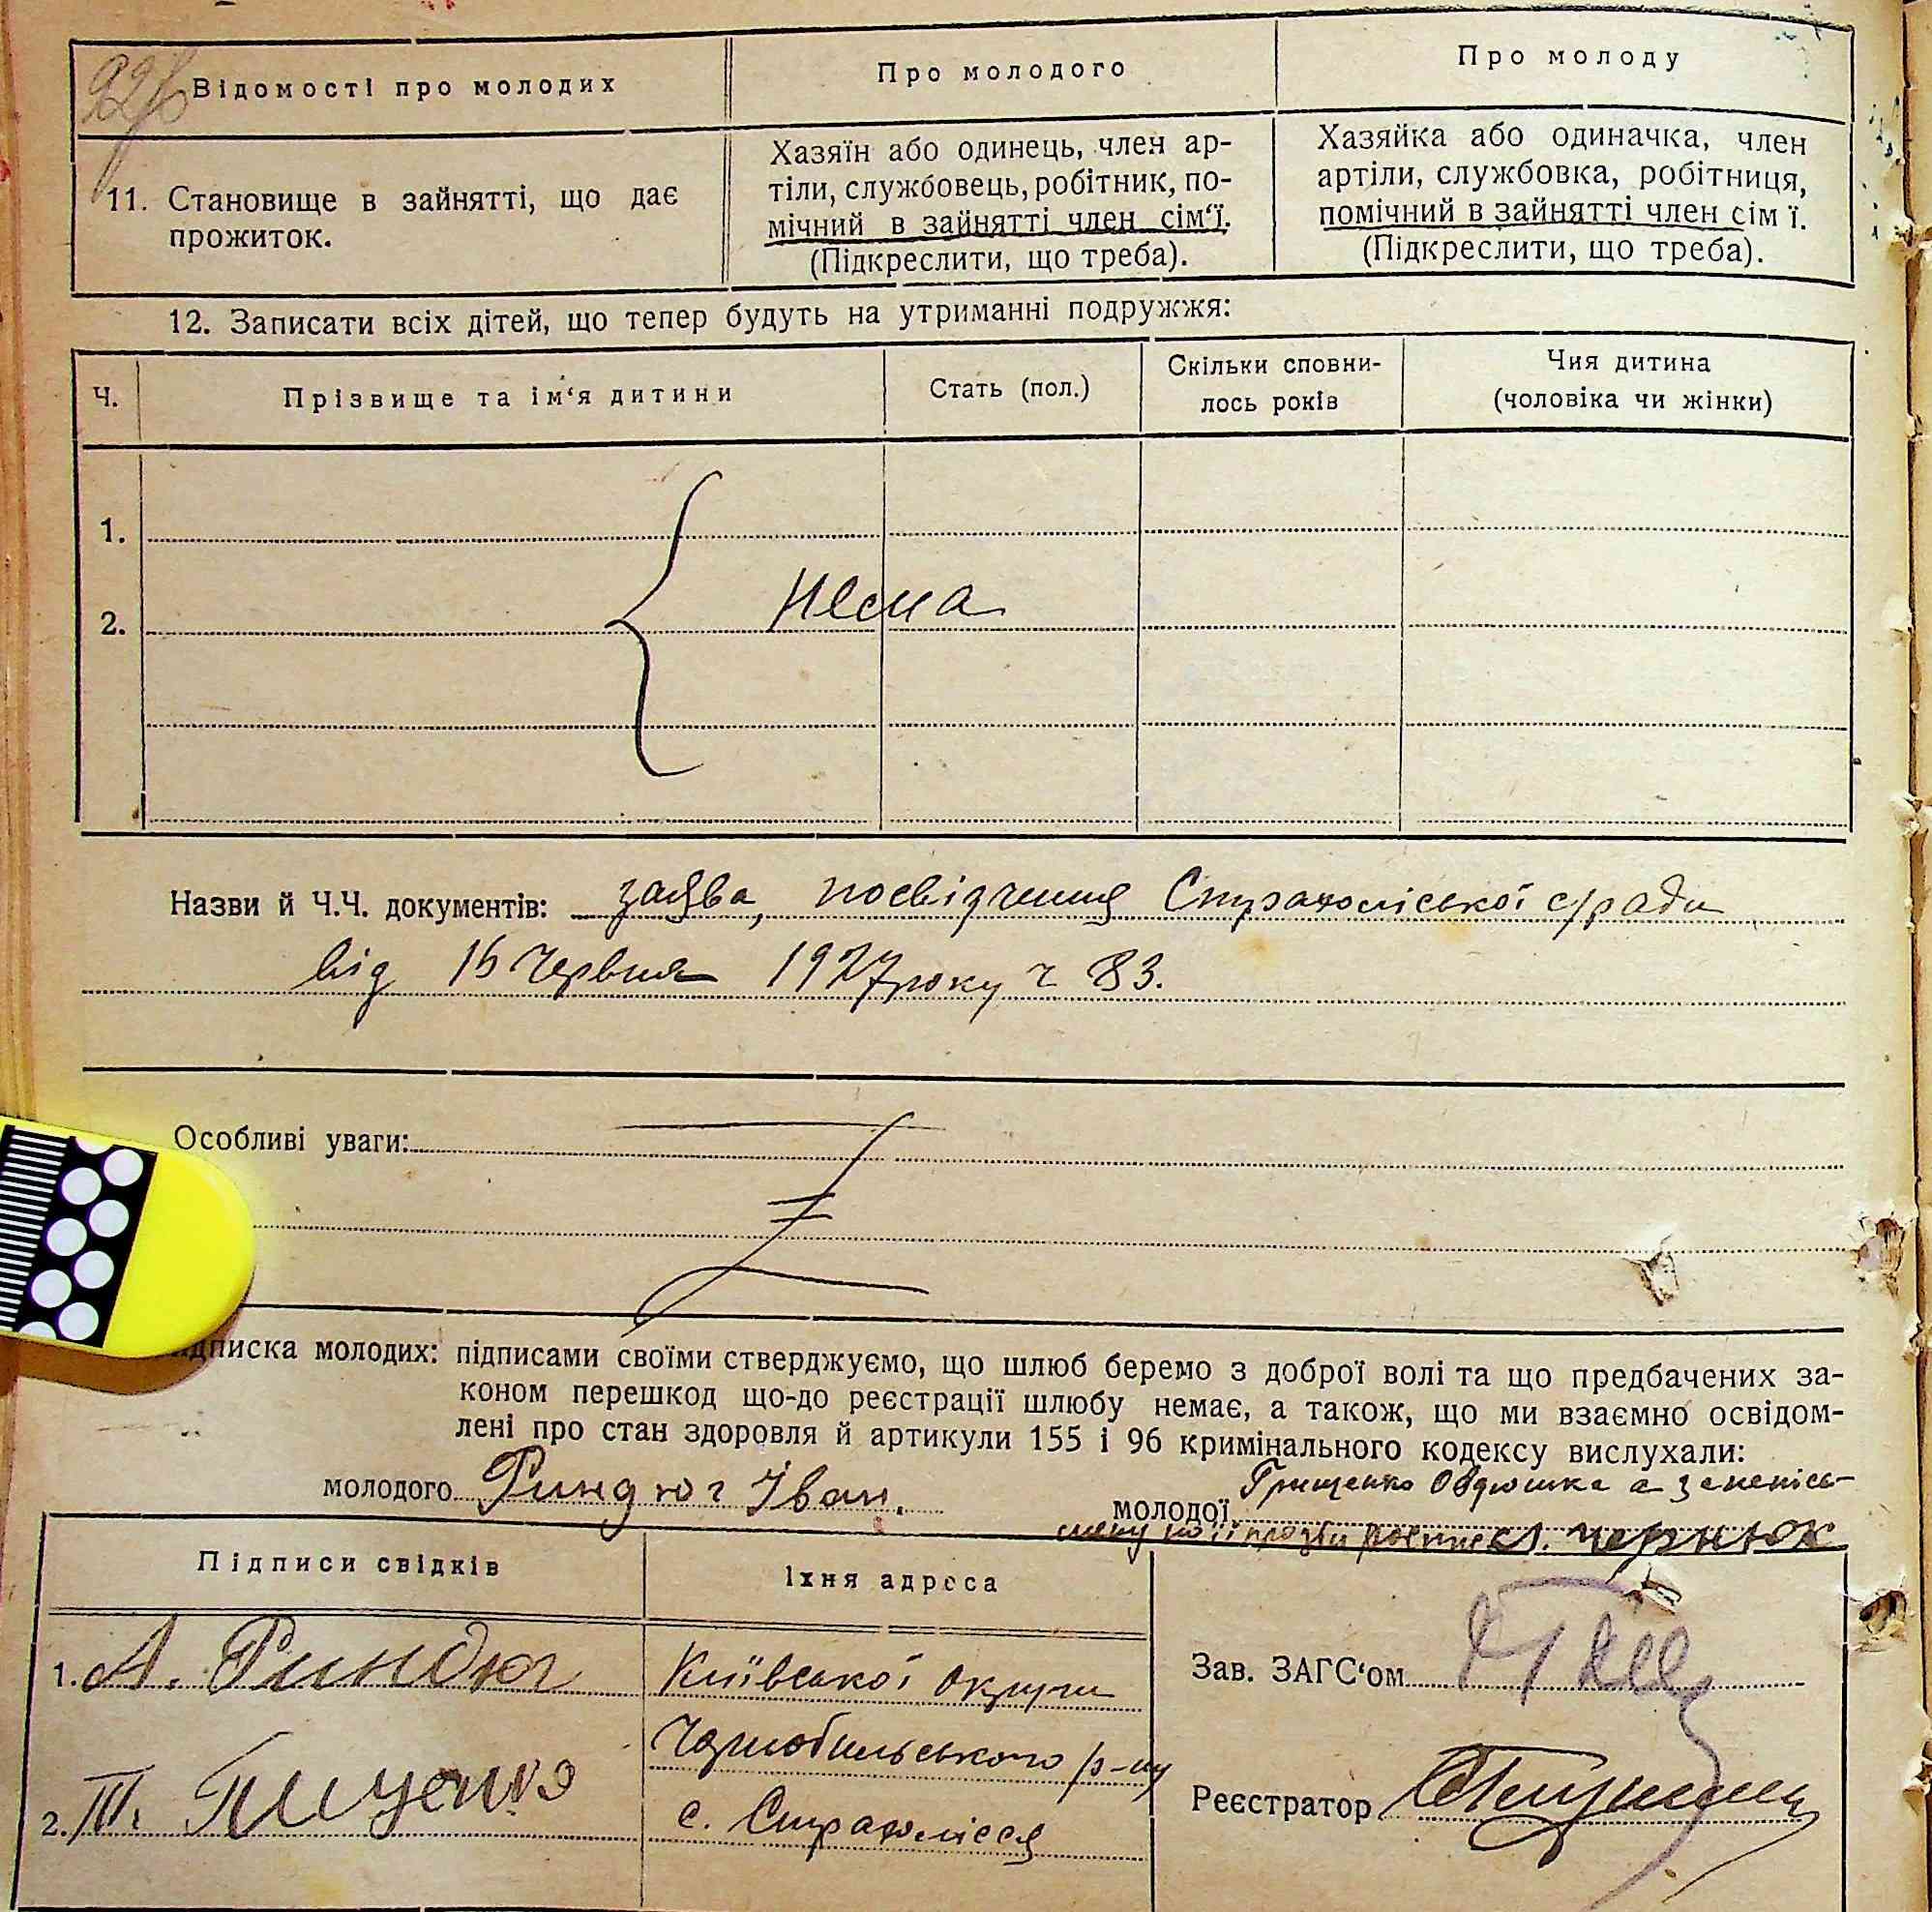 Відомості про молодих
Про молодого
Про молоду
11. Становище в зайнятті, що дає
прожиток.
Хазяїн або одинець, член ар-
тіли, службовець, робітник, по-
мічний в зайнятті член сім‘ї.
(Підкреслити, що треба).
Хазяйка або одиначка, член
артіли, службовка, робітниця,
помічний в зайнятті член сім ї.
(Підкреслити, що треба).
12. Записати всіх дітей, що тепер будуть на утриманні подружжя:
Ч.
Прізвище та ім‘я дитини
Стать (пол.)
Скільки сповни-
лось років
Чия дитина
(чоловіка чи жінки)
1.
2.
Нема
Назви й Ч.Ч. документів: заява, посвідчення Страхоліської с/ради
від 16 Червня 1927 року ч 83.
Особливі уваги:
дписка молодих: підписами своїми стверджуємо, що шлюб беремо з доброї волі та що предбачених за-
коном перешкод що-до реєстрації шлюбу немає, а також, що ми взаємно освідом-
лені про стан здоровля й артикули 155 і 96 кримінального кодексу вислухали:
молодого Риндюг Іван.
молодої Грищенко Овдюшка а
по її прозби Чернюк
Підписи свідків
Їхня адреса
1. А. Риндюг
Київської Округи
Чорнобильського р-ну
2.
с. Страхолісся
Зав. ЗАГС‘ом
Реєстратор